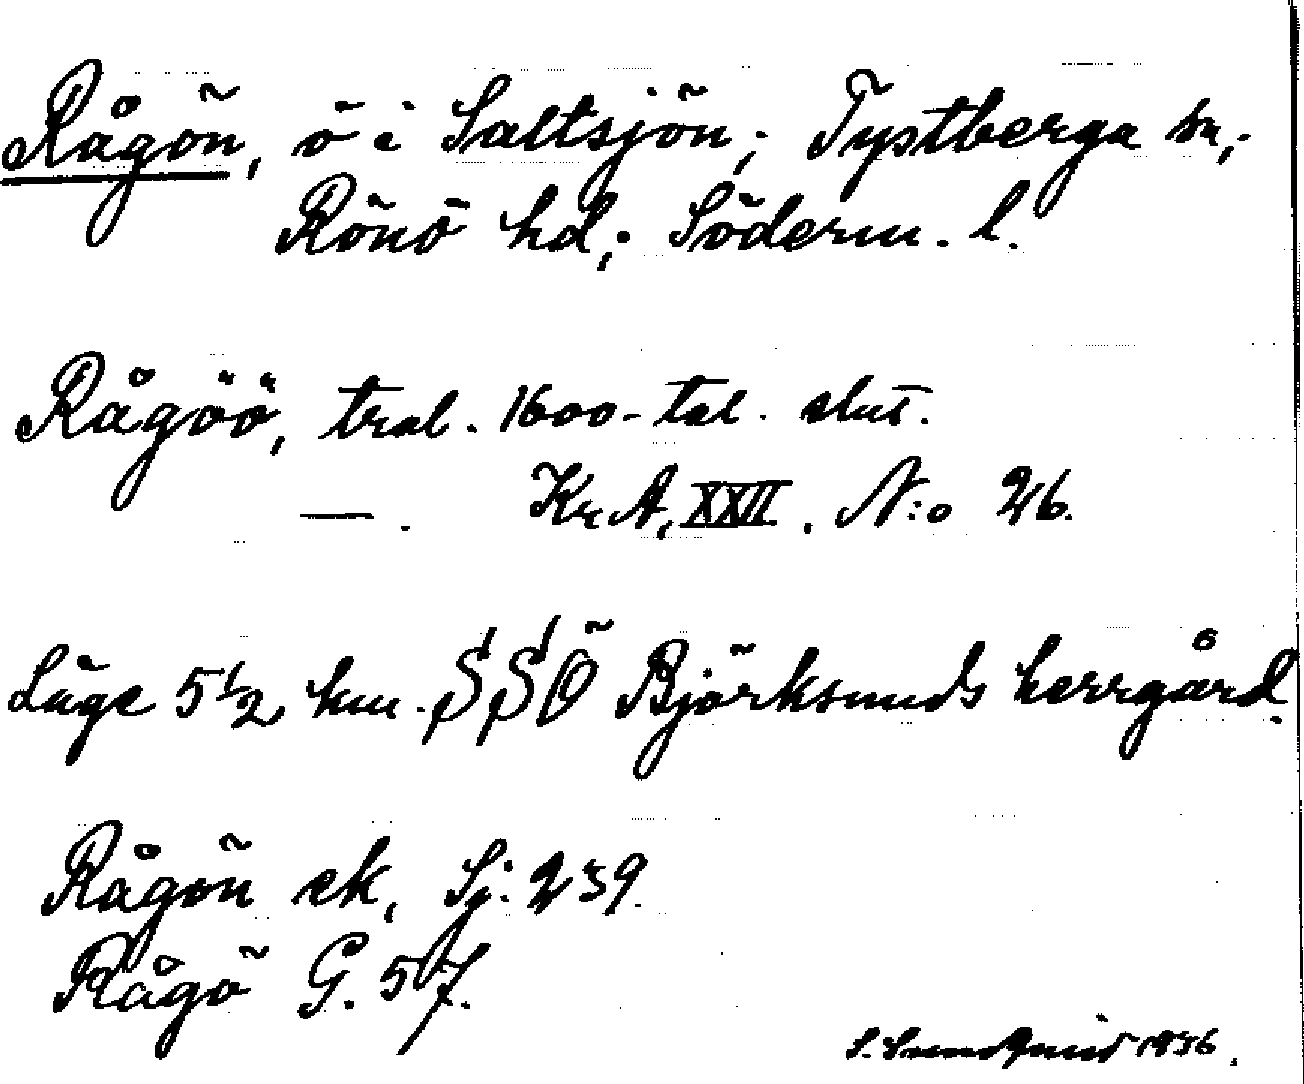 Rågön, ö i Saltsjön; Tystberga sn,;
Rönö hd,; Söderm. l.
Rågöö, tral. 1600-tal. slut.
—. Kr A, XXII. N:o 26.
Läge 5 1/2 km. SSÖ Björksunds herrgård.
Rågön ek, Sj: 239.
Rågö G. 57.
S. Sundqvist 1936.